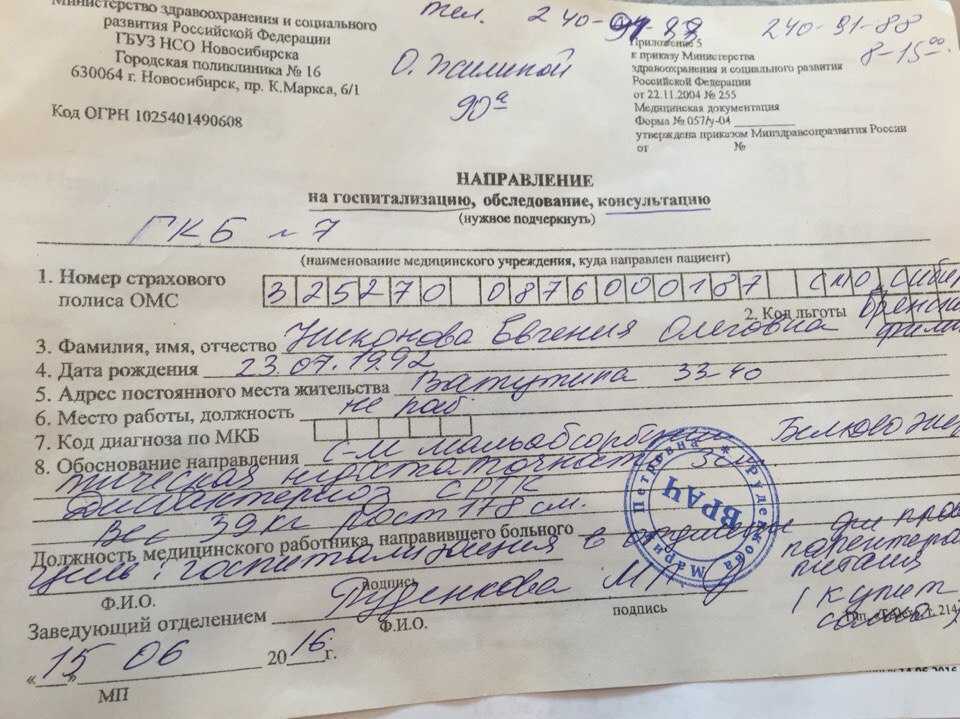 Министерство здравоохранения и социального
развития Российской Федерации
ГБУЗ НСО Новосибирска
Городская поликлиника № 16
630064 г. Новосибирск, пр. К.Маркса, 6/1
Код ОГРН 1025401490608
тел. 240-91-88 240-91-88
8-15⁰⁰
О. Жилиной
90а
Приложение 5
к приказу Министерства
здравоохранения и социального развития
Российской Федерации
от 22.11.2004 № 255
Медицинская документация
Форма № 057/у-04
утверждена приказом Минздравсоцразвития России
от №
НАПРАВЛЕНИЕ
на госпитализацию, обследование, консультацию
(нужное подчеркнуть)
ГКБ №7
(наименование медицинского учреждения, куда направлен пациент)
1. Номер страхового
полиса ОМС 325270 0876000187 СМО
2. Код льготы
3. Фамилия, имя, отчество Никонова Евгения Олеговна
4. Дата рождения 23.07.1992
5. Адрес постоянного места жительства Ватутина 33-40
6. Место работы, должность не раб
7. Код диагноза по МКБ
8. Обоснование направления С-м мальабсорбции Белково энерге
тическая недостаточность
Дисбактериоз СРТК
Вес 39кг рост 178 см.
Должность медицинского работника, направившего больного
Цель: госпитализация в для
парентера
питания
Ф.И.О. подпись
Заведующий отделением Груденкова М П
Ф.И.О. подпись
"15" 06 2016г.
МП
Груденкова Мария Петровна *
ВРАЧ